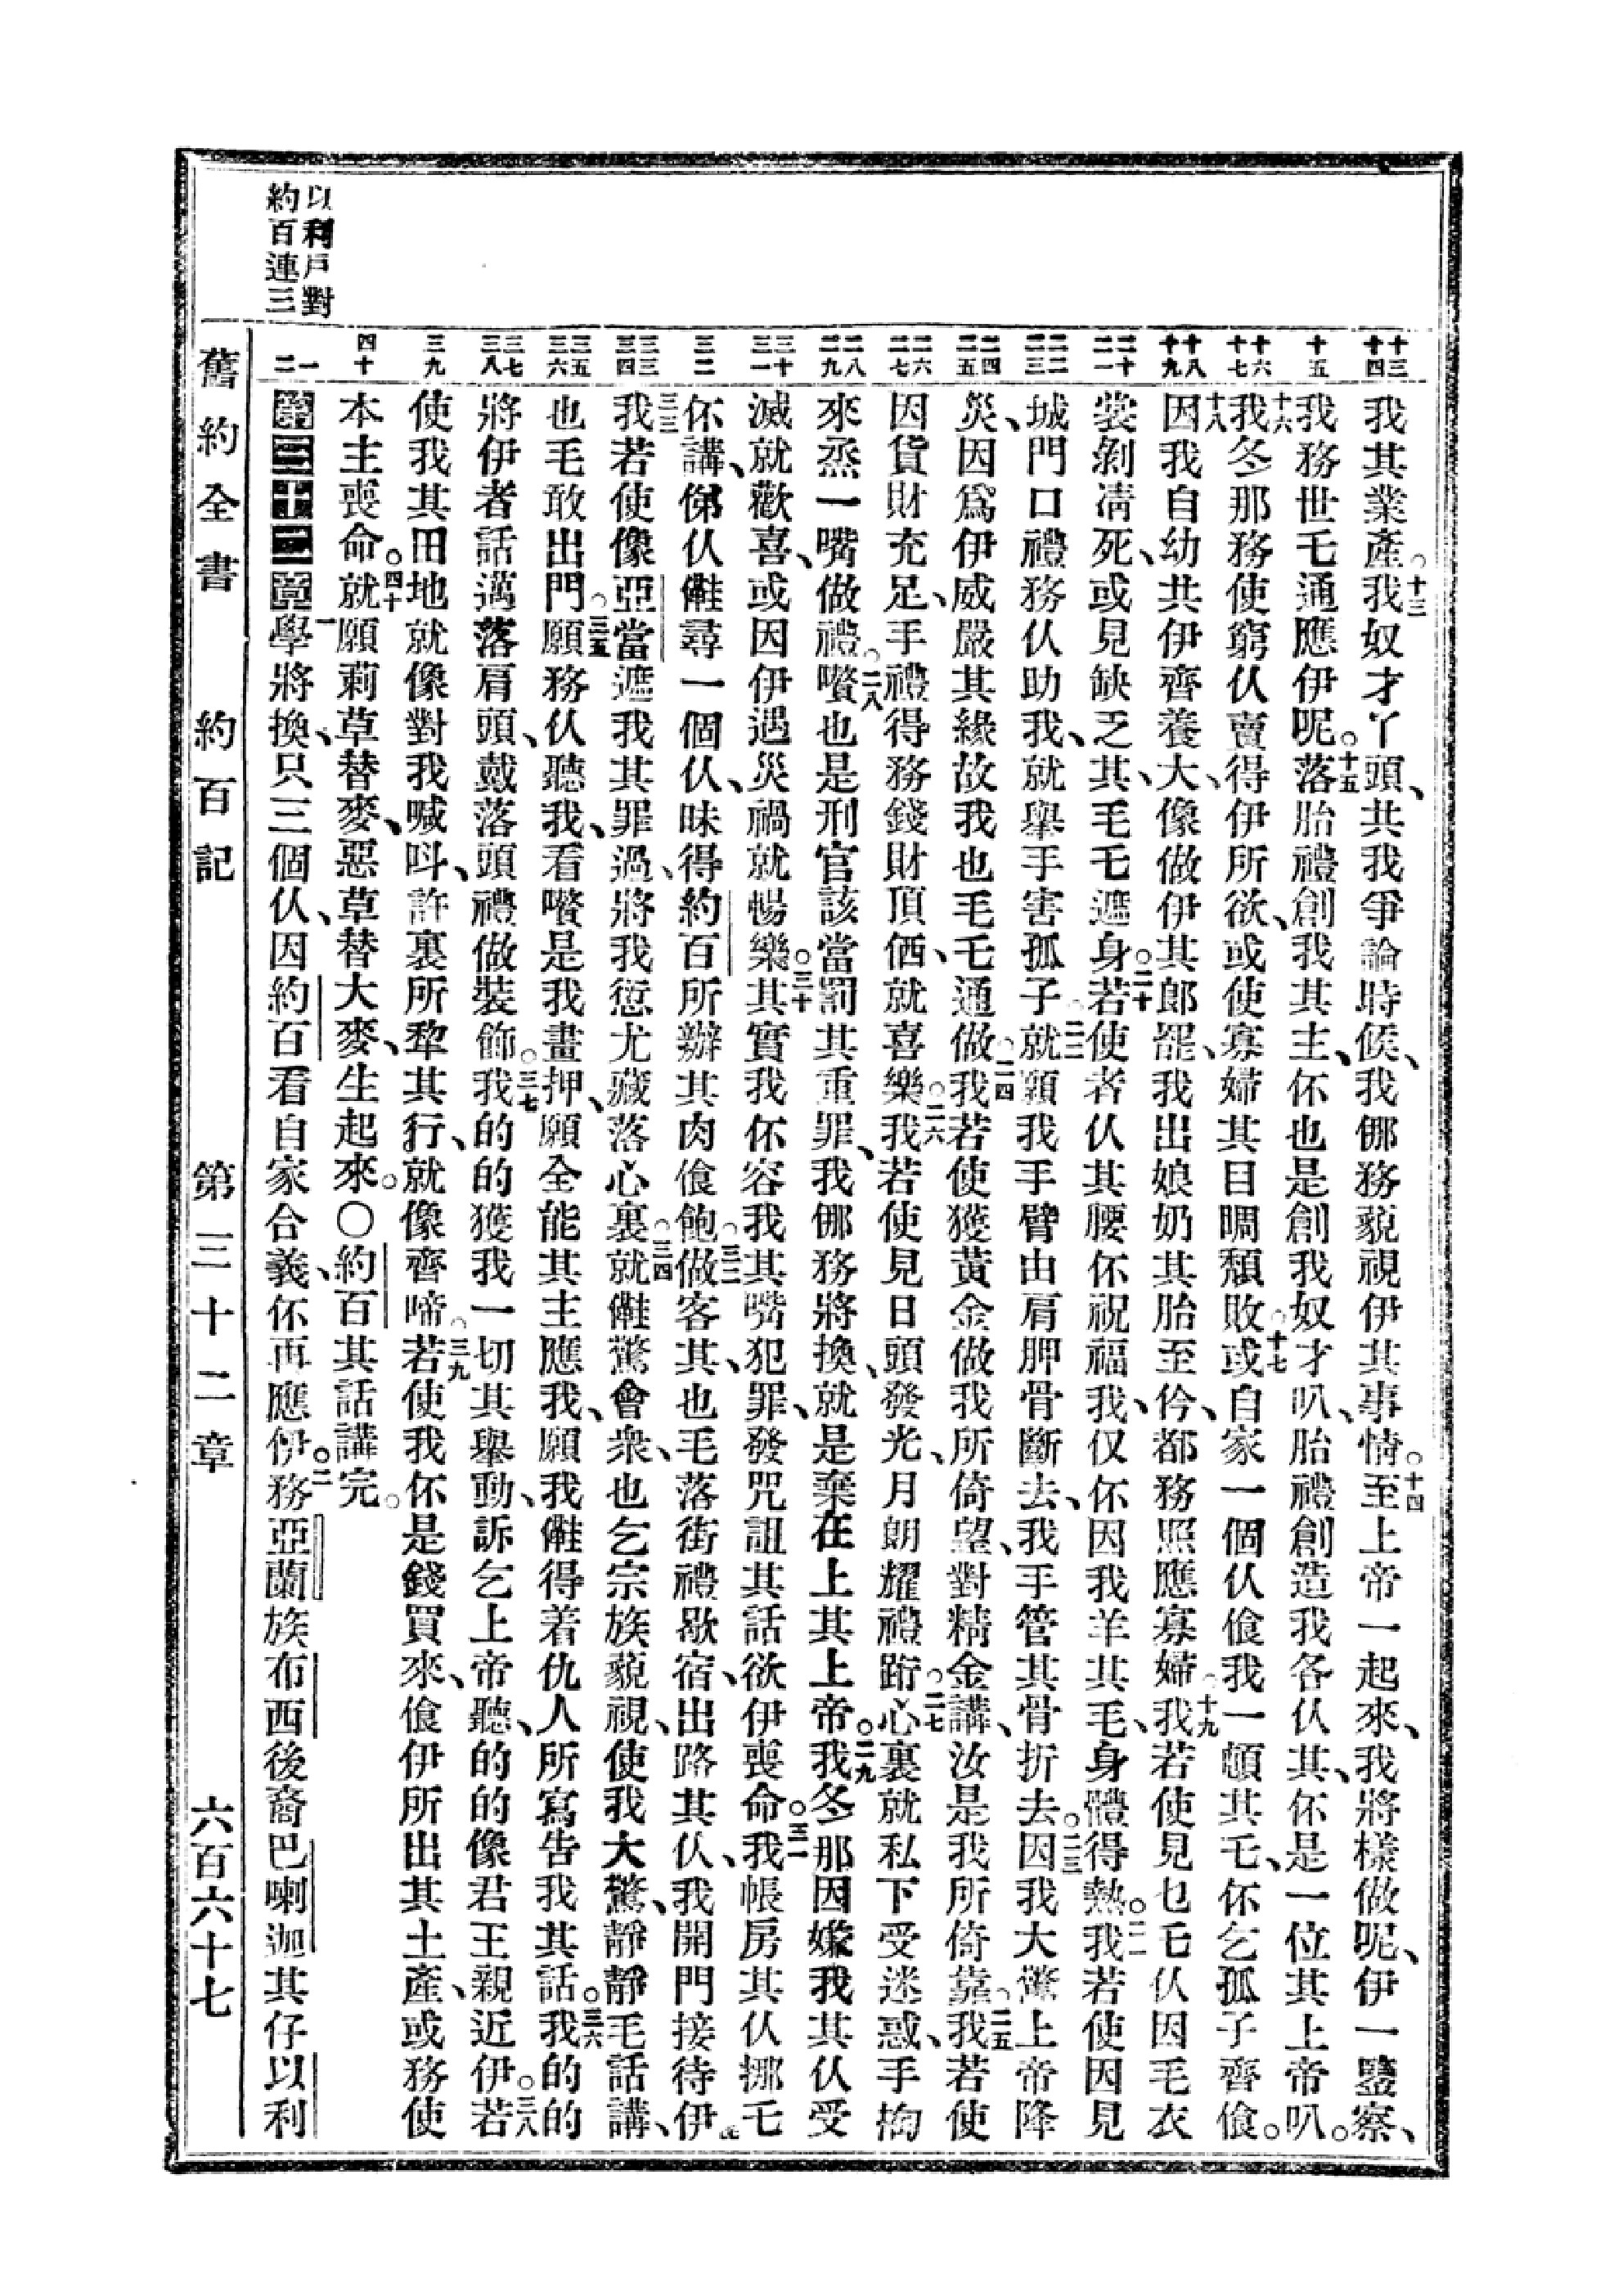 十三 十四
十五
十六 十七
十八 十九
二十 二一
二二 二三
二四 二五
二六 二七
二八 二九
三十 三一
三二
三三 三四
三五 三六
三七 三八
三九
四十
一 二
以利戶對
約百連三
我其業產。十三我奴才丫頭、共我爭論時候、我倻務藐視伊其事情。十四至上帝一起來、我將樣做呢、伊一鑒察、
我務世乇通應伊呢。十五落胎禮創我其主、伓也是創我奴才叭、胎禮創造我各伩其、伓是一位其上帝叭。
十六我冬那務使窮伩賣得伊所欲、或使寡婦其目睭頹敗。十七或自家一個伩飡我一頓其乇、伓乞孤子齊飡。
十八因我自幼共伊齊養大、像做伊其郎罷、我出娘奶其胎至仱、都務照應寡婦。十九我若使見乜乇伩因毛衣
裳剝凊死、或見缺乏其、毛乇遮身。二十若使者伩其腰伓祝福我、伩伓因我羊其毛、身體得熱。二一我若使因見
城門口禮務伩助我、就舉手害孤子。二二就願我手臂由肩胛骨斷去、我手管其骨折去。二三因我大驚上帝降
災、因爲伊威嚴其緣故我也毛乇通做。二四我若使獲黃金做我所倚望、對精金講、汝是我所倚靠。二五我若使
因貨財充足、手禮得務錢財頂価、就喜樂。二六我若使見日頭發光、月朗耀禮跻。二七心裏就私下受迷惑、手掬
來烝一嘴做禮。二八嚽也是刑官該當罰其重罪、我倻務將換、就是棄在上其上帝。二九我冬那因嫌我其伩受
滅就歡喜、或因伊遇災禍就暢樂。三十其實我伓容我其嘴犯罪、發咒詛其話欲伊喪命。三一我帳房其伩挪乇
伓講、俤伩𣍐尋一個伩、昧得約百所辦其肉飡飽。三二做客其、也毛落街禮歇宿、出路其伩、我開門接待伊
三三我若使像亞當遮我其罪過、將我愆尤藏落心裏。三四就𣍐驚會衆、也乞宗族藐視、使我大驚、靜靜毛話講、
也毛敢出門。三五願務伩聽我、看嚽是我畫押、願全能其主應我、願我𣍐得着仇人所寫告我其話。三六我的的
將伊者話邁落肩頭、戴落頭禮做裝飾。三七我的的獲我一切其舉動、訴乞上帝聽、的的像君王親近伊。三八若
使我其田地就像對我喊呌、許裏所犂其行、就像齊啼。三九若使我伓是錢買來、飡伊所出其土產、或務使
本主喪命。四十就願莿草替麥、惡草替大麥、生起來。〇約百其話講完。
第三十二章一學將換、只三個伩、因約百看自家合義、伓再應伊。二務亞蘭族布西後裔巴喇迦其仔以利
舊約全書　約百記　第三十二章　六百六十七